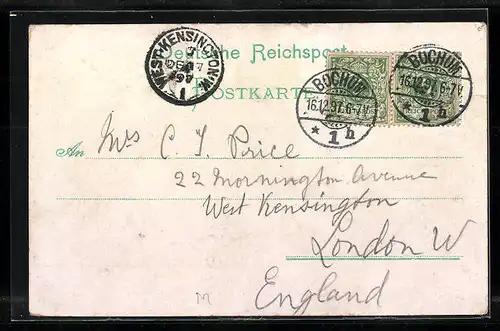 Deutsche Reichspost
POSTKARTE
WEST-KENSINGTON.W.
97
1
BOCHUM
16.12.97.6-7V.
* 1 h
BOCHUM
16.12.97.6-7V.
* 1 h
An Mrs C. T. Price
22 Mornington Avenue
West Kensington
London W
England
M